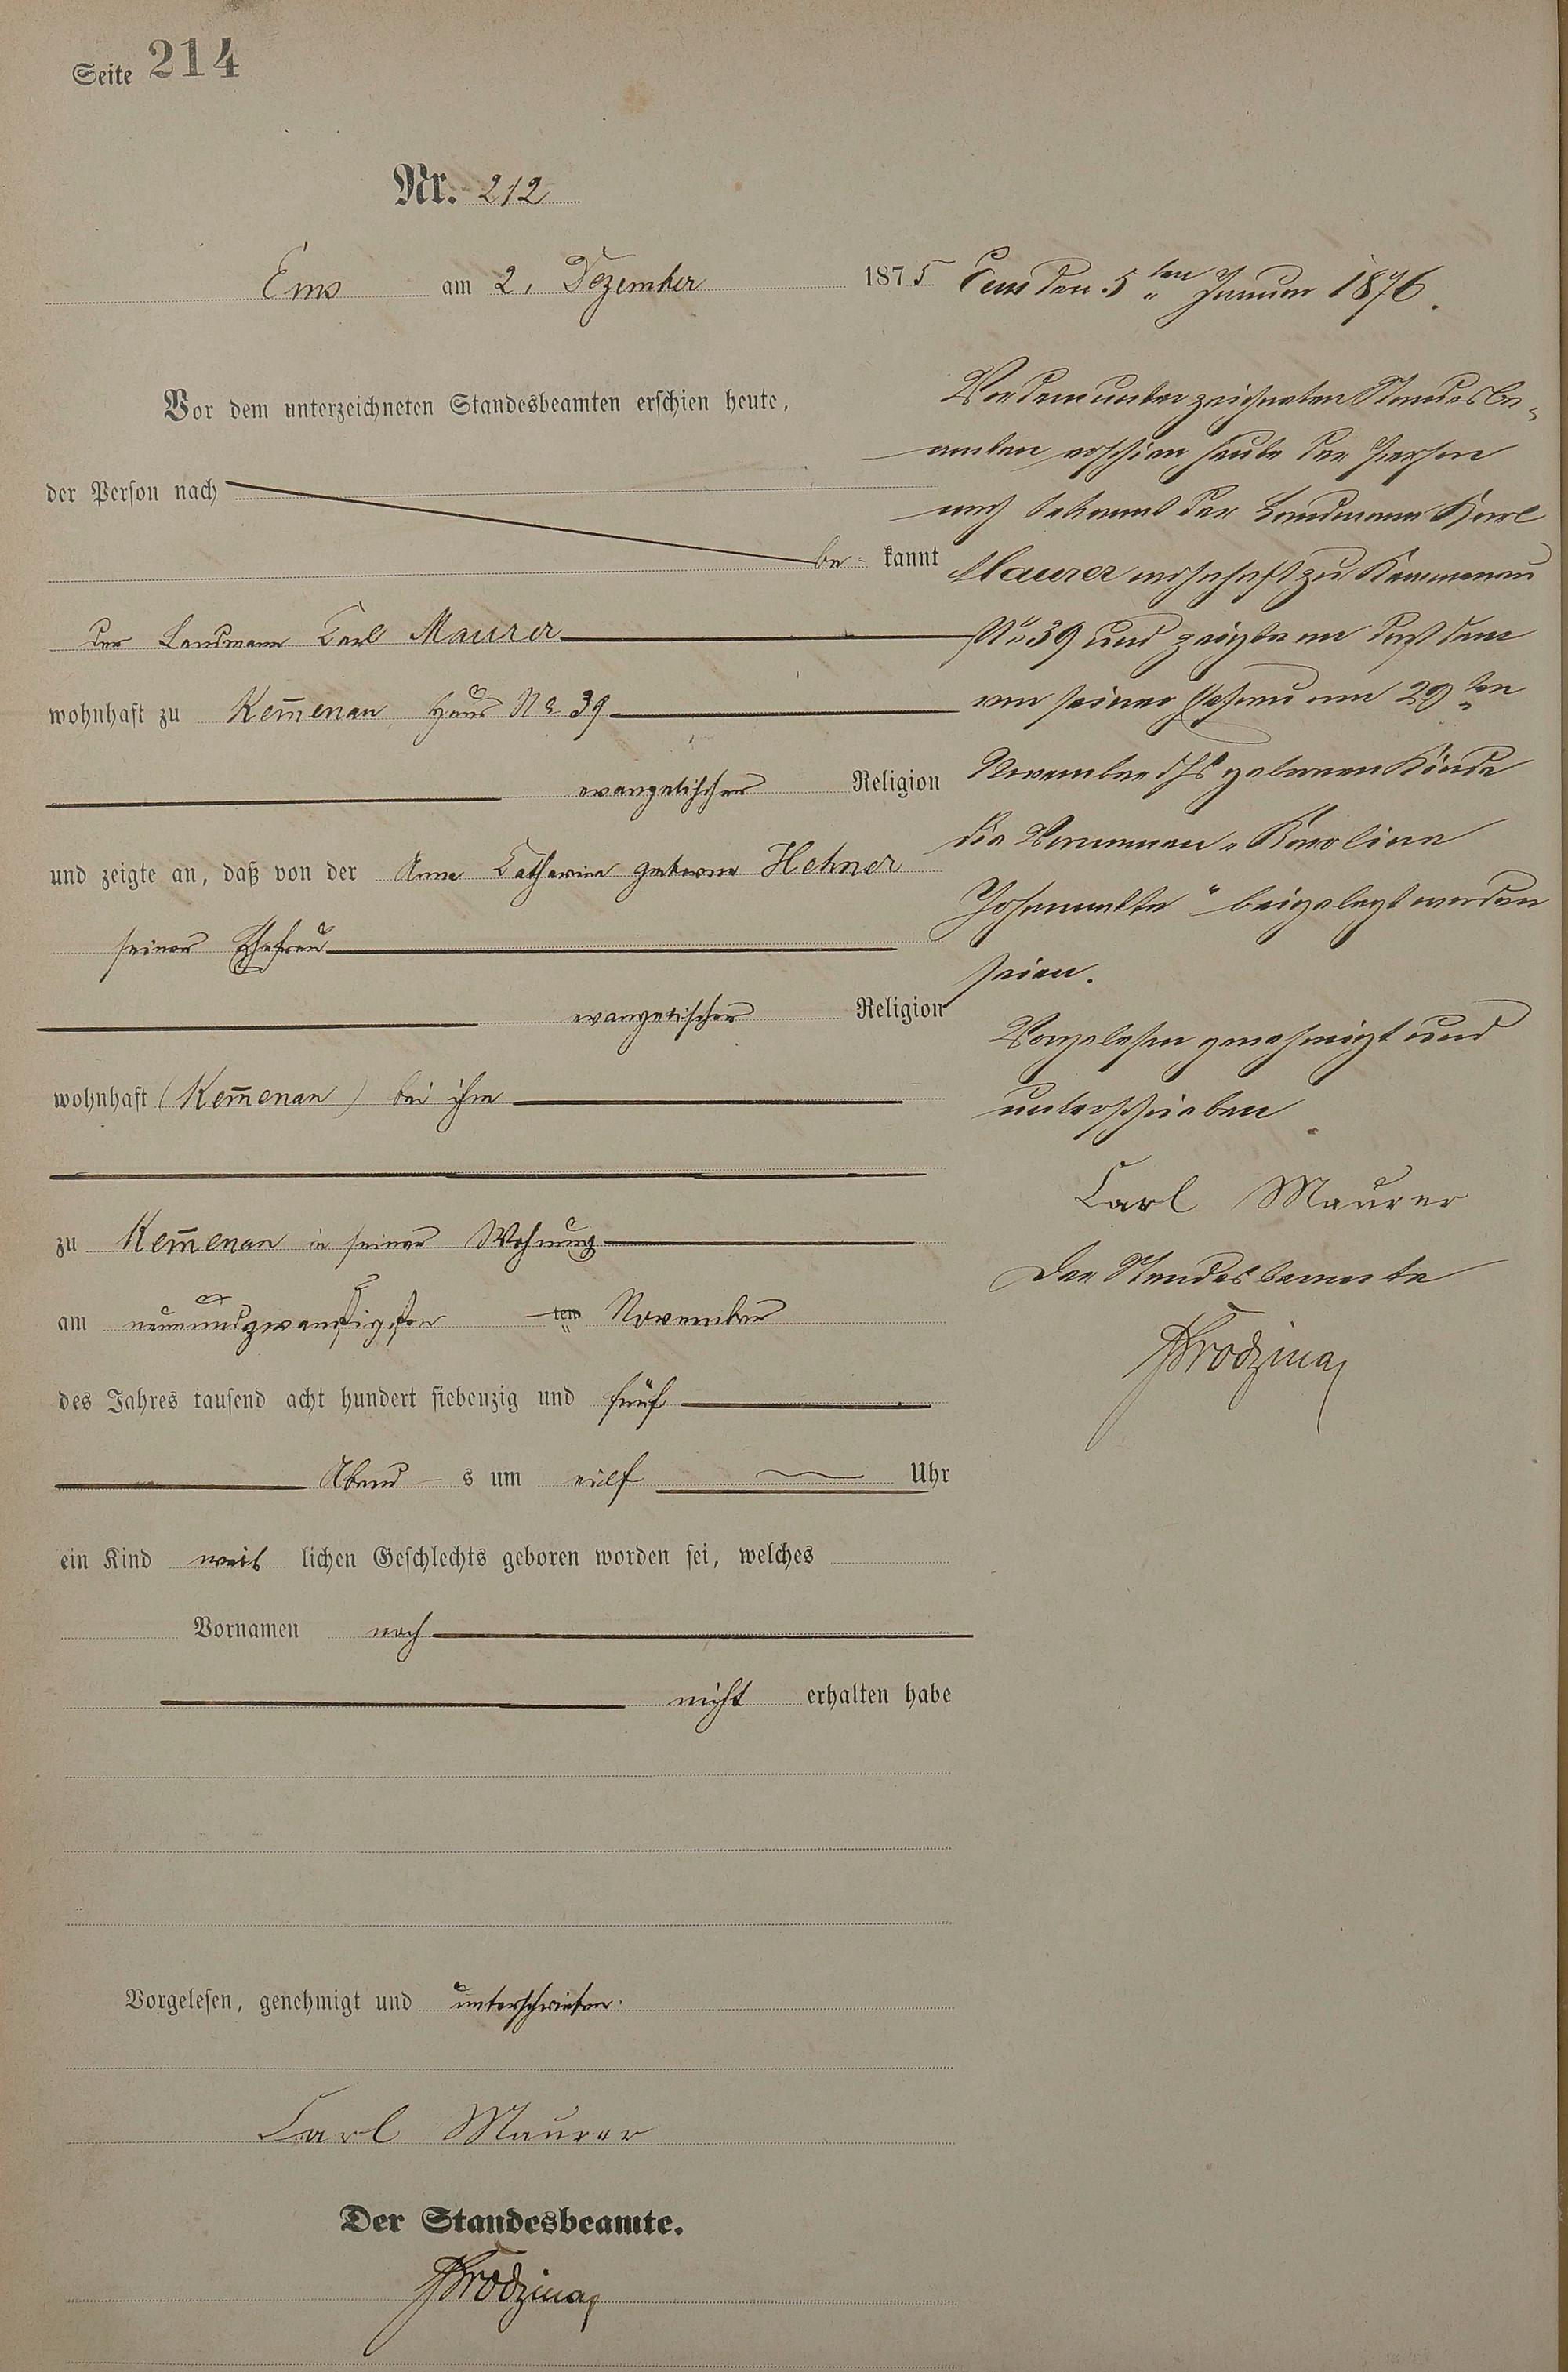 Seite 214
Nr. 212
Ems am 2. Dezember 1875
Vor dem unterzeichneten Standesbeamten erschien heute,
der Person nach
be- kannt
der Landmann Carl Maurer
wohnhaft zu Kem̅enau Haus No 39
evangelischer Religion
und zeigte an, daß von der Anna Catharina geborene Hehner
seiner Ehefrau
evangelischer Religion
wohnhaft (Kem̅enau) bei ihm
zu Kem̅enau in seiner Wohnung
am neunundzwanzigsten ten November
des Jahres tausend acht hundert siebenzig und fünf
Abend s um eilf Uhr
ein Kind weib lichen Geschlechts geboren worden sei, welches
Vornamen noch
nicht erhalten habe
Vorgelesen, genehmigt und unterschrieben.
Carl Maurer
Der Standesbeamte.
Ems den 5ten Januar 1876.
Vor dem unterzeichneten Standesbe-
amten erschien heute der Person
nach bekannt der Landmann Karl
Maurer wohnhaft zu Kemmenau
No 39 und zeigte an daß dem
von seiner Ehefrau am 29ten
November geborenen Kinde
die Vornamen „Karoline
Johannette" beigelegt worden
seien.
Vorgelesen genehmigt und
unterschrieben
Carl Maurer
Der Standesbeamte